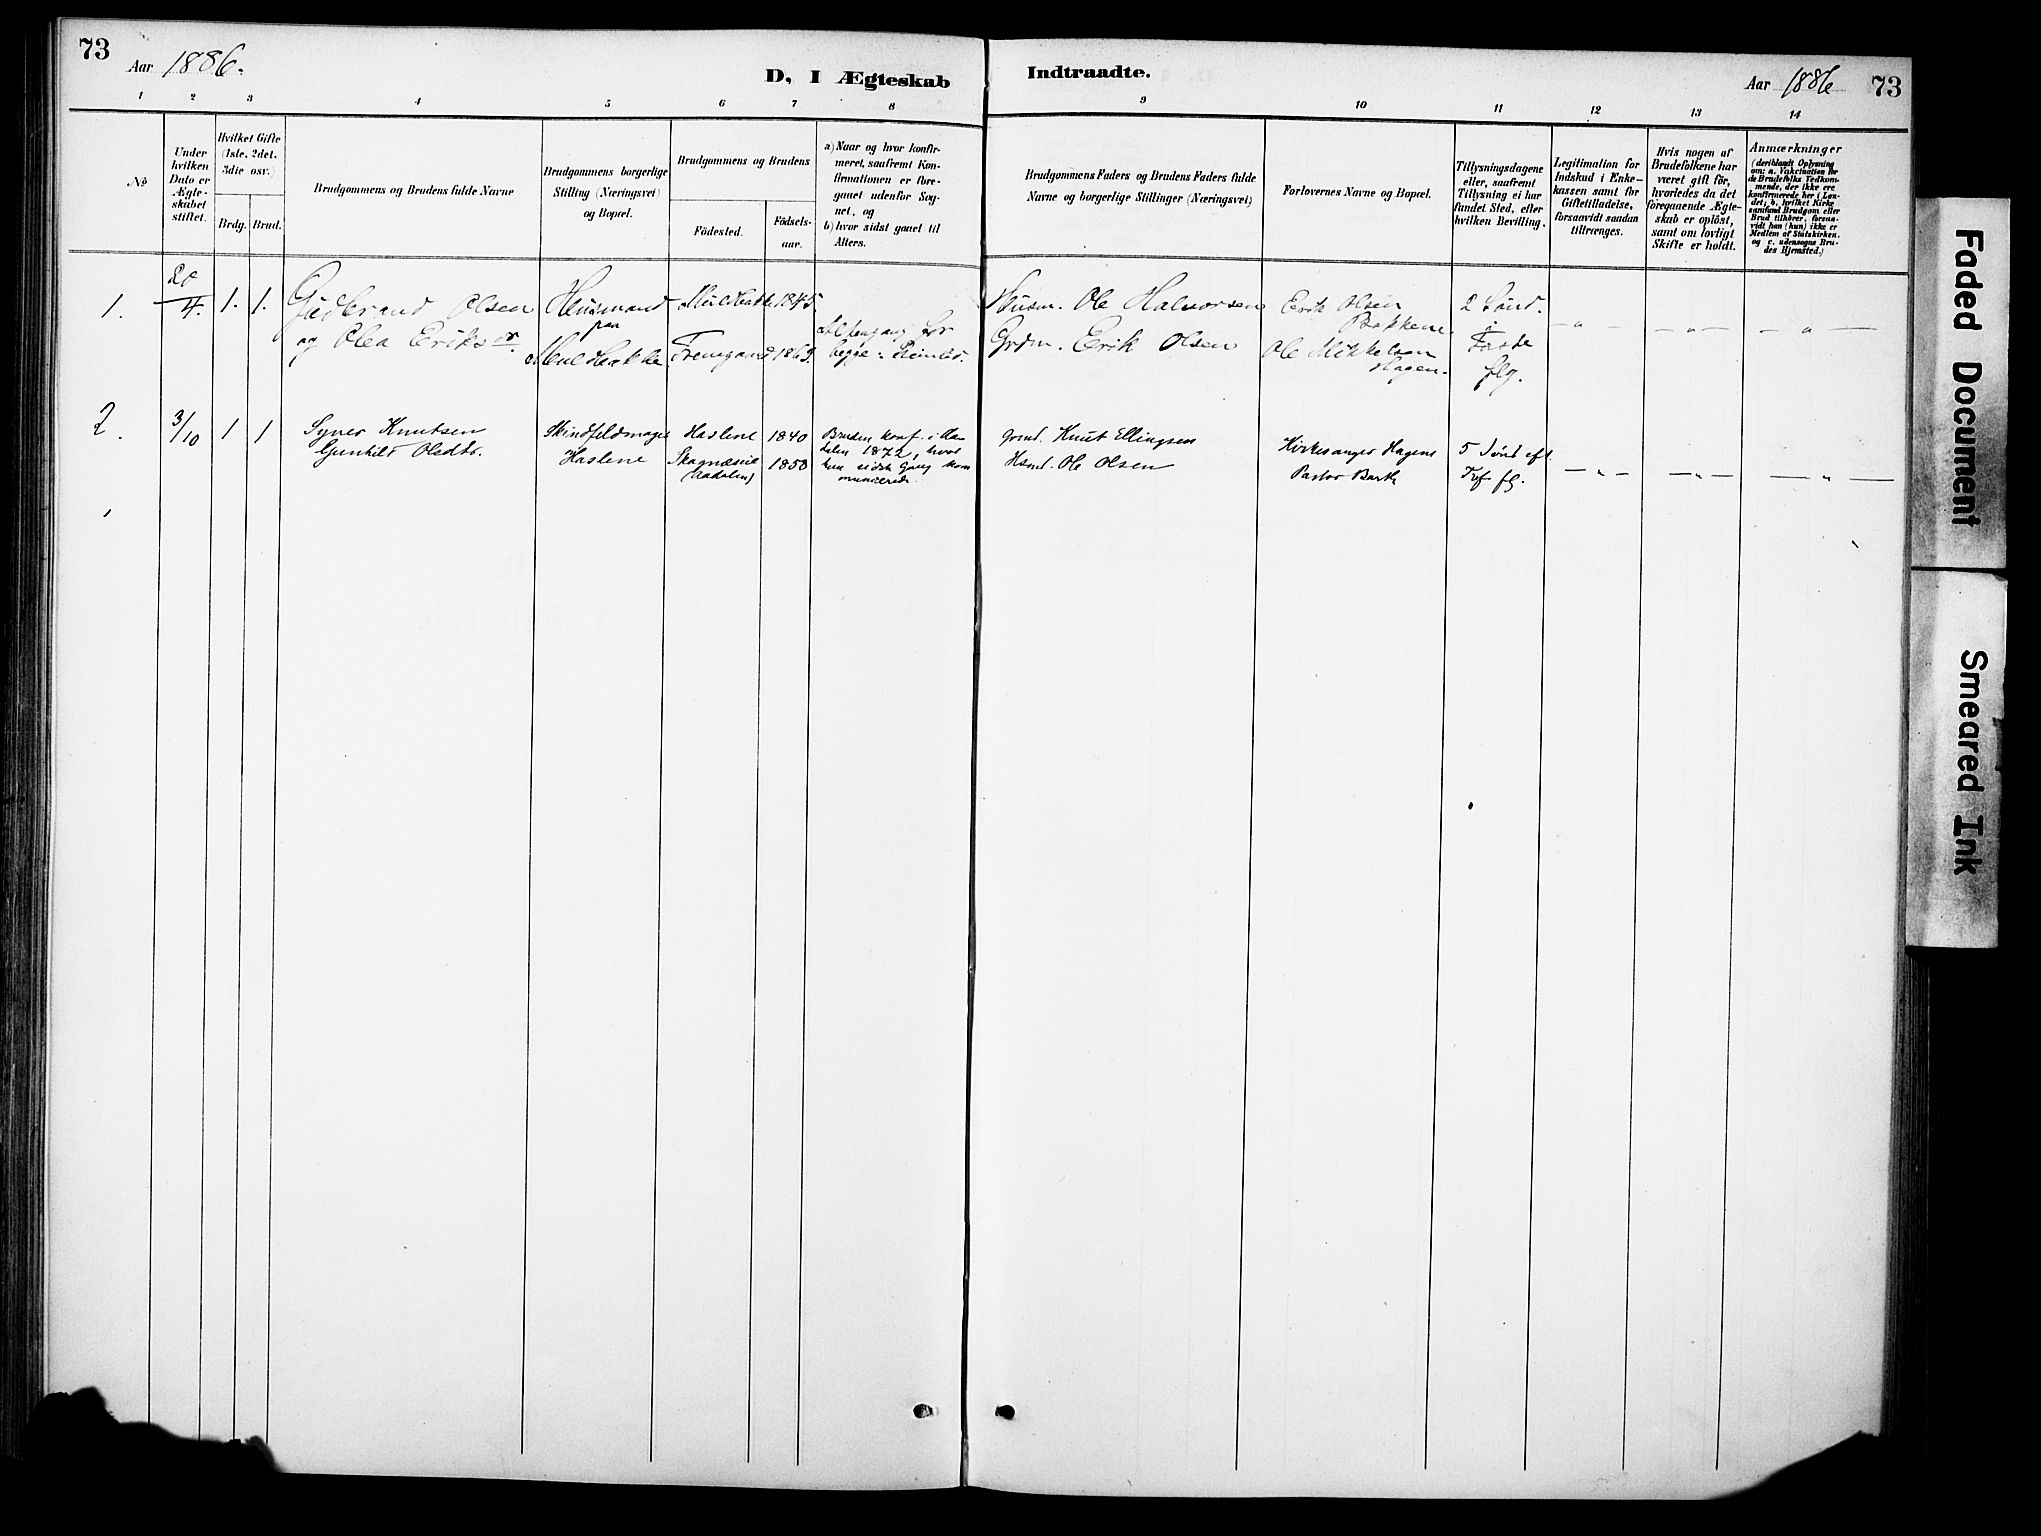 73
Aar 1886.
D, I Ægteskab
Indtraadte.
Aar 1886
73
1 2 3 4 5 6 7 8 9 10 11 12 13 14
No
Under
hvilken
Dato er
Ægte-
skabet
stiftet.
Hvilket Gifte
(1ste, 2det,
3die osv.)
Brdg. Brud.
Brudgommens og Brudens fulde Navne
Brudgommens borgerlige
Stilling (Næringsvei)
og Bopæl.
Brudgommens og Brudens
Födested.
Födsels-
aar.
a) Naar og hvor konfir-
meret, saafremt Kon-
firmationen er fore-
gaaet udenfor Sog-
net, og
b) hvor sidst gaaet til
Alters.
Brudgommens Faders og Brudens Faders fulde
Navne og borgerlige Stillinger (Næringsvei)
Forlovernes Navne og Bopæl.
Tillysningsdagene
eller, saafremt
Tillysning ei har
fundet Sted, efter
hvilken Bevilling.
Legitimation for
Indskud i Enke-
kassen samt for
Giftetilladelse,
forsaavidt saadan
tiltrænges.
Hvis nogen af
Brudefolkene har
været gift för,
hvorledes da det
foregaaende Ægte-
skab er oplöst,
samt om lovligt
Skifte er holdt.
Anmærkninger
(deriblandt Oplysning
om: a. Vakcination for
de Brudefolks Vedkom-
mende, der ikke ere
konfirmerede her i Lan-
det; b. hvilket Kirke
samfund Brudgom eller
Brud tilhörer, forsaa-
vidt han (hun) ikke er
Medlem af Statskirken.
og c. udensogns Bru-
des Hjemsted.)
1. 20/4. 1. 1.
Gudbrand Olsen
og Olea Eriksdr.
Husmand
paa
1845.
1863.
for
begge:
Husm. Ole Halvorsen
Grdm. Erik Olsen
Erik Olsen
Bakkene
Ole Mikkelsen
Hagen.
2 Sönd.
i
Faste
flg.
— " — — " — — " —
2. 3/10 1 1
Syver Knutsen
Gunhild Olsdtr.
Skindfeldmager
Haslene
Haslene 1840
(Aadalen) 1858
Bruden konf. i Aa-
dalen 1872, hvor
hun sidste Gang kom
municerede.
Grmd. Knut Ellingsen
Hsmd. Ole Olsen
Kirkesanger Hagene
Pastor Barth
5 Sönd eft.
Tref flg.
— " — — " — — " —
Faded Document
Smeared Ink